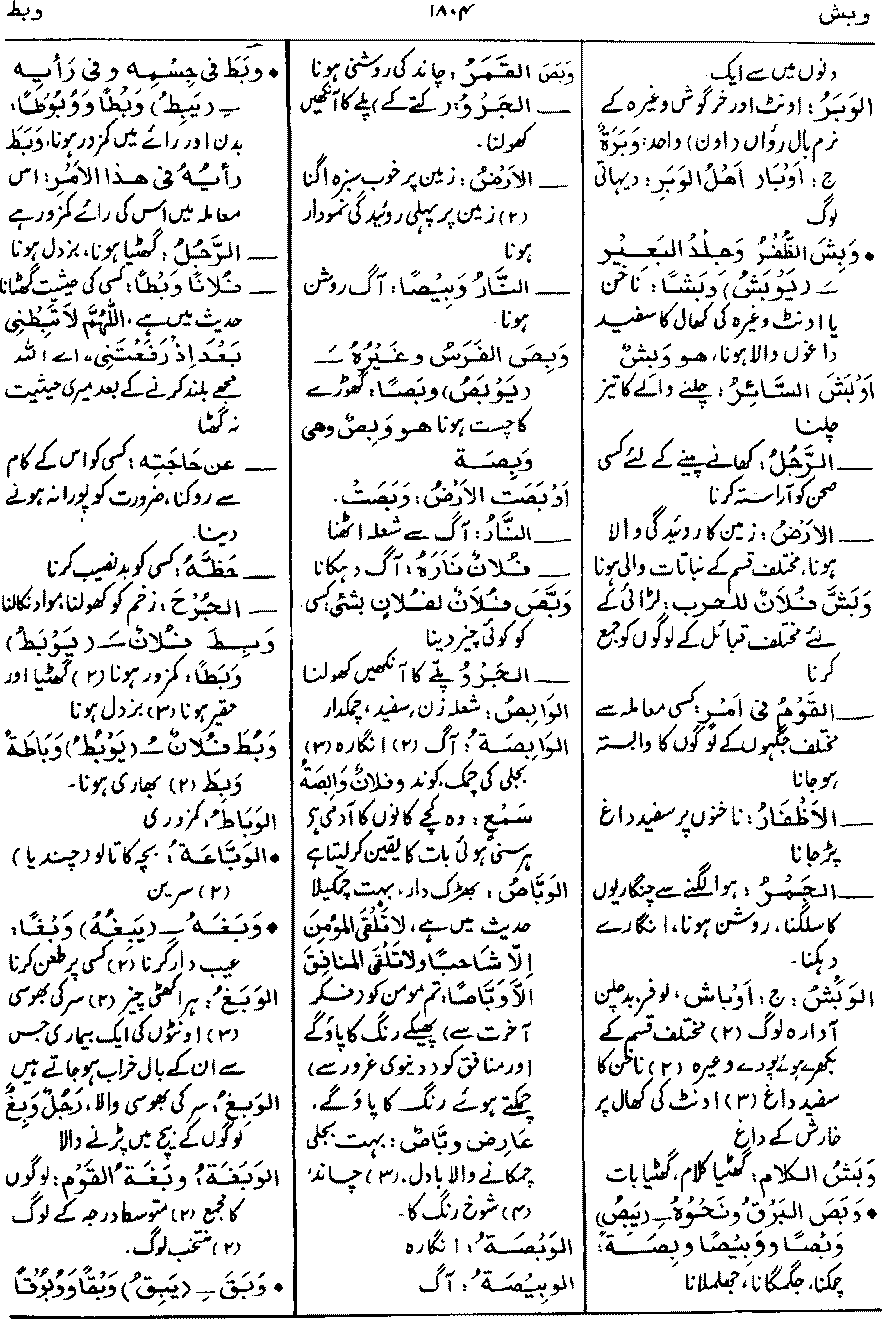 وبش
۱۸۰۴
وبط
دنوں میں سے ایک
الوَبَرُ: اونٹ اور خرگوش وغیرہ کے
نرم بال رواں (اون) واحد: وَبَرَةٌ
ج: أَوْبَار أَهْلُ الوَبَرِ: دیہاتی
لوگ
• وَبِشَ الظُّفُرُ وَجِلْدُ البَعِيْرِ
ـَـ (يَوْبَشُ) وَبَشًا: ناخن
یا اونٹ وغیرہ کی کھال کا سفید
داغوں والا ہونا، هو وَبِشٌ
أَوْبَشَ السَّائِرُ: چلنے والے کا تیز
چلنا
ــــ الرَّجُلُ: کھانے پینے کے لئے کسی
صحن کو آراستہ کرنا
ــــ الأَرْضُ: زمین کا روئیدگی والا
ہونا، مختلف قسم کے نباتات والی ہونا
وَبَّشَ فُلَانٌ للحرب: لڑائی کے
لئے مختلف قبائل کے لوگوں کو جمع
کرنا
ــــ القَوْمُ فِي أَمْرٍ: کسی معاملہ سے
مختلف جگہوں کے لوگوں کا وابستہ
ہو جانا
ــــ الأَظْفَارُ: ناخنوں پر سفید داغ
پڑ جانا
ــــ الجَمْرُ: ہوا لگنے سے چنگاریوں
کا سلگنا، روشن ہونا، انگارے
دہکنا۔
الوَبْشُ: ج: أَوْبَاش، لوفر، بدچلن
آوارہ لوگ (۲) مختلف قسم کے
بکھرے ہوئے پودے وغیرہ (۲) ناخن کا
سفید داغ (۳) اونٹ کی کھال پر
خارش کے داغ
وَبَشُ الكلام: گھٹیا کلام، گھٹیا بات
• وَبَصَ البَرْقُ وَنَحْوُهُ ـِـ (يَبِصُ)
وَبْصًا وَوَبِيْصًا وبِصَةً:
چمکنا، جگمگانا، جھلملانا
وَبَصَ القَمَرُ: چاند کی روشنی ہونا
ــــ الجَرْوُ: (کتے کے) پلے کا آنکھیں
کھولنا۔
ــــ الأَرْضُ: زمین پر خوب سبزہ اگنا
(۲) زمین پر پہلی روئید کی نمودار
ہونا
ــــ النَّارُ وَبِيْصًا: آگ روشن
ہونا۔
وَبِصَ الفَرَسُ وغَيْرُهُ ـَـ
(يَوْبَصُ) وبَصًا: گھوڑے
کا چست ہونا هو وَبِصٌ وهي
وَبِصَة
أَوْبَصَت الأَرْضُ: وَبَصَتْ۔
ــــ النَّارُ: آگ سے شعلہ اٹھنا
ــــ فُلَانٌ نَارَهُ: آگ دہکانا
وَبَّصَ فُلَانٌ لفُلانٍ بشئي: کسی
کو کوئی چیز دینا
ــــ الجَرْوُ پلے کا آنکھیں کھولنا
الوَابِصُ: شعلہ زن، سفید، چمکدار
الوَابِصَةُ: آگ (۲) انگارہ (۳)
بجلی کی چمک، کوند وفلانٌ وَابِصَةُ
سَمْعٍ: وہ کچے کانوں کا آدمی ہے
ہر سنی ہوئی بات کا یقین کر لیتا ہے
الوَبَّاصُ: بھڑک دار، بہت چمکیلا
حدیث میں ہے، لَا تَلْقَى المُؤْمِنَ
إِلَّا شَاحِبًا ولَا تَلْقَى المنافِقَ
إِلَّا وَبَّاصًا: تم مومن کو (فکر
آخرت سے) پھیکے رنگ کا پاؤ گے
اور منافق کو (دنیوی غرور سے)
چمکتے ہوئے رنگ کا پاؤ گے۔
عَارِض وَبَّاصٌ: بہت بجلی
چمکانے والا بادل۔ (۳) چاند؛
(۴) شوخ رنگ کا۔
الوَبْصَةُ: انگارہ
الوبِيْصَةُ: آگ
• وبَطَ فِي جِسْمِهِ وفي رَأيِهِ
ـِـ (يَبِطُ) وَبْطًا وَوُبُوْطًا:
بدن اور رائے میں کمزور ہونا، وَبَطَ
رأيُهُ في هذا الأَمْرِ: اس
معاملہ میں اس کی رائے کمزور ہے
ــــ الرَّجُلُ: گھٹیا ہونا، بزدل ہونا
ــــ فُلَانًا وَبْطًا: کسی کی حیثیت گھٹانا
حدیث میں ہے، اللَّهُمَّ لَا تَبِطْنِي
بَعْدَ إِذْ رَفَعْتَنِي، اے اللہ
مجھے بلند کرنے کے بعد میری حیثیت
نہ گھٹا
ــــ عن حَاجَتِهِ: کسی کو اس کے کام
سے روکنا، ضرورت کو پورا نہ ہونے
دینا۔
ــــ حَظَّهُ: کسی کو بدنصیب کرنا
ــــ الجُرْحَ: زخم کو کھولنا، مواد نکالنا
وَبِطَ فُلَانٌ ـَـ (يَوْبَطُ)
وَبَطًا: کمزور ہونا (۲) گھٹیا اور
حقیر ہونا (۳) بزدل ہونا
وَبُطَ فُلَانٌ ـُـ (يَوْبُطُ) وَبَاطَةً
وَبِطَ (۲) بھاری ہونا۔
الوَبَاطُ: کمزوری
• الوَبَّاعَةُ: بچہ کا تالو (چندیا)
(۲) سرین
• وَبَغَهُ ـِـ (يَبِغُهُ) وَبْغًا:
عیب دار کرنا (۲) کسی پر طعن کرنا
الوَبَغُ: ہر اکھٹی چیز (۲) سر کی بھوسی
(۳) اونٹوں کی ایک بیماری جس
سے ان کے بال خراب ہو جاتے ہیں
الوَبِغُ: سر کی بھوسی والا، رَجُلٌ وَبِغٌ
لوگوں کے بیچ میں پڑنے والا
الوَبَغَةُ: وبَغَةُ القَوْمِ: لوگوں
کا مجمع (۲) متوسط درجہ کے لوگ
(۲) منتخب لوگ۔
• وَبَقَ ـِـ (يَبِقُ) وَبْقًا وَوُبُوْقًا